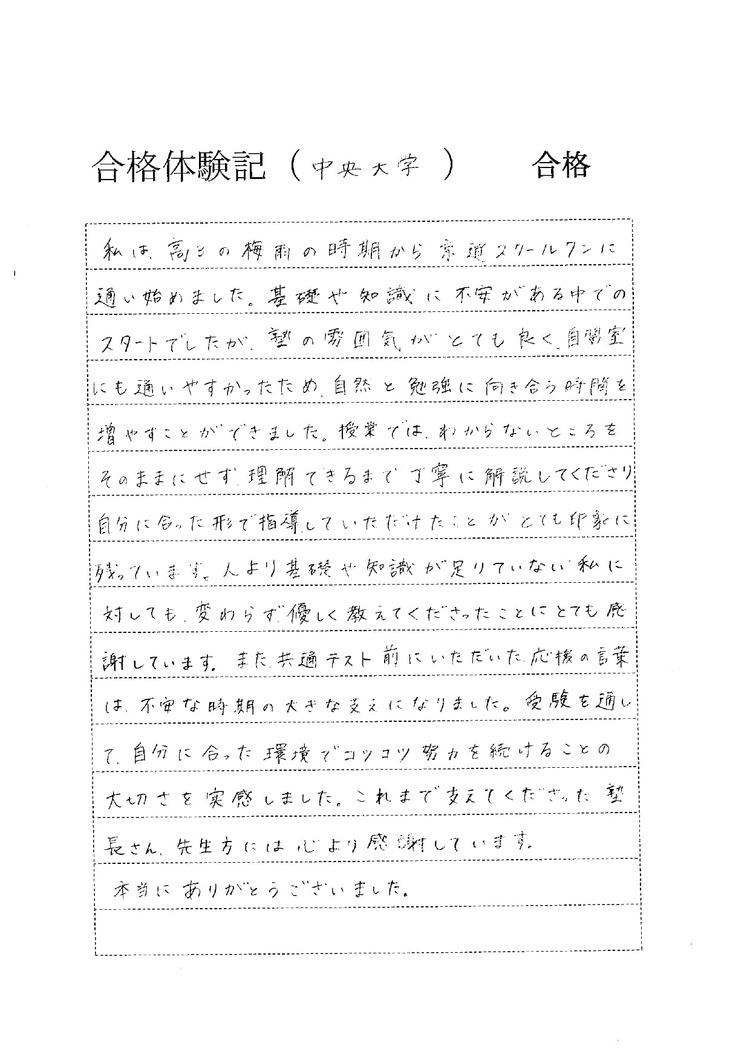 合格体験記（中央大学） 合格
私は、高3の梅雨の時期から京進スクールワンに
通い始めました。基礎や知識に不安がある中での
スタートでしたが、塾の雰囲気がとても良く、自習室
にも通いやすかったため、自然と勉強に向き合う時間を
増やすことができました。授業では、わからないところを
そのままにせず、理解できるまで丁寧に解説してくださり
自分に合った形で指導していただけたことがとても印象に
残っています。人より基礎や知識が足りていない私に
対しても、変わらず、優しく教えてくださったことにとても感
謝しています。また、共通テスト前にいただいた、応援の言葉
は、不安な時期の大きな支えになりました。受験を通し
て、自分に合った環境でコツコツ努力を続けることの
大切さを実感しました。これまで支えてくださった塾
長さん、先生方には心より感謝しています。
本当にありがとうございました。